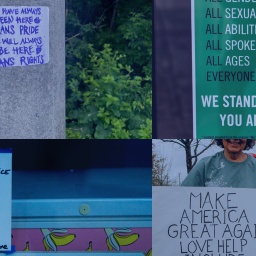 HAVE ALWAYS
BEEN HERE
TRANS PRIDE
WILL ALWAYS
BE HERE
TRANS RIGHTS
ALL
ALL SEXUA
ALL ABILIT
ALL SPOKE
ALL AGES
EVERYONE
WE STAND
YOU A
MAKE
AMERICA
GREAT AGAI
LOVE HELP